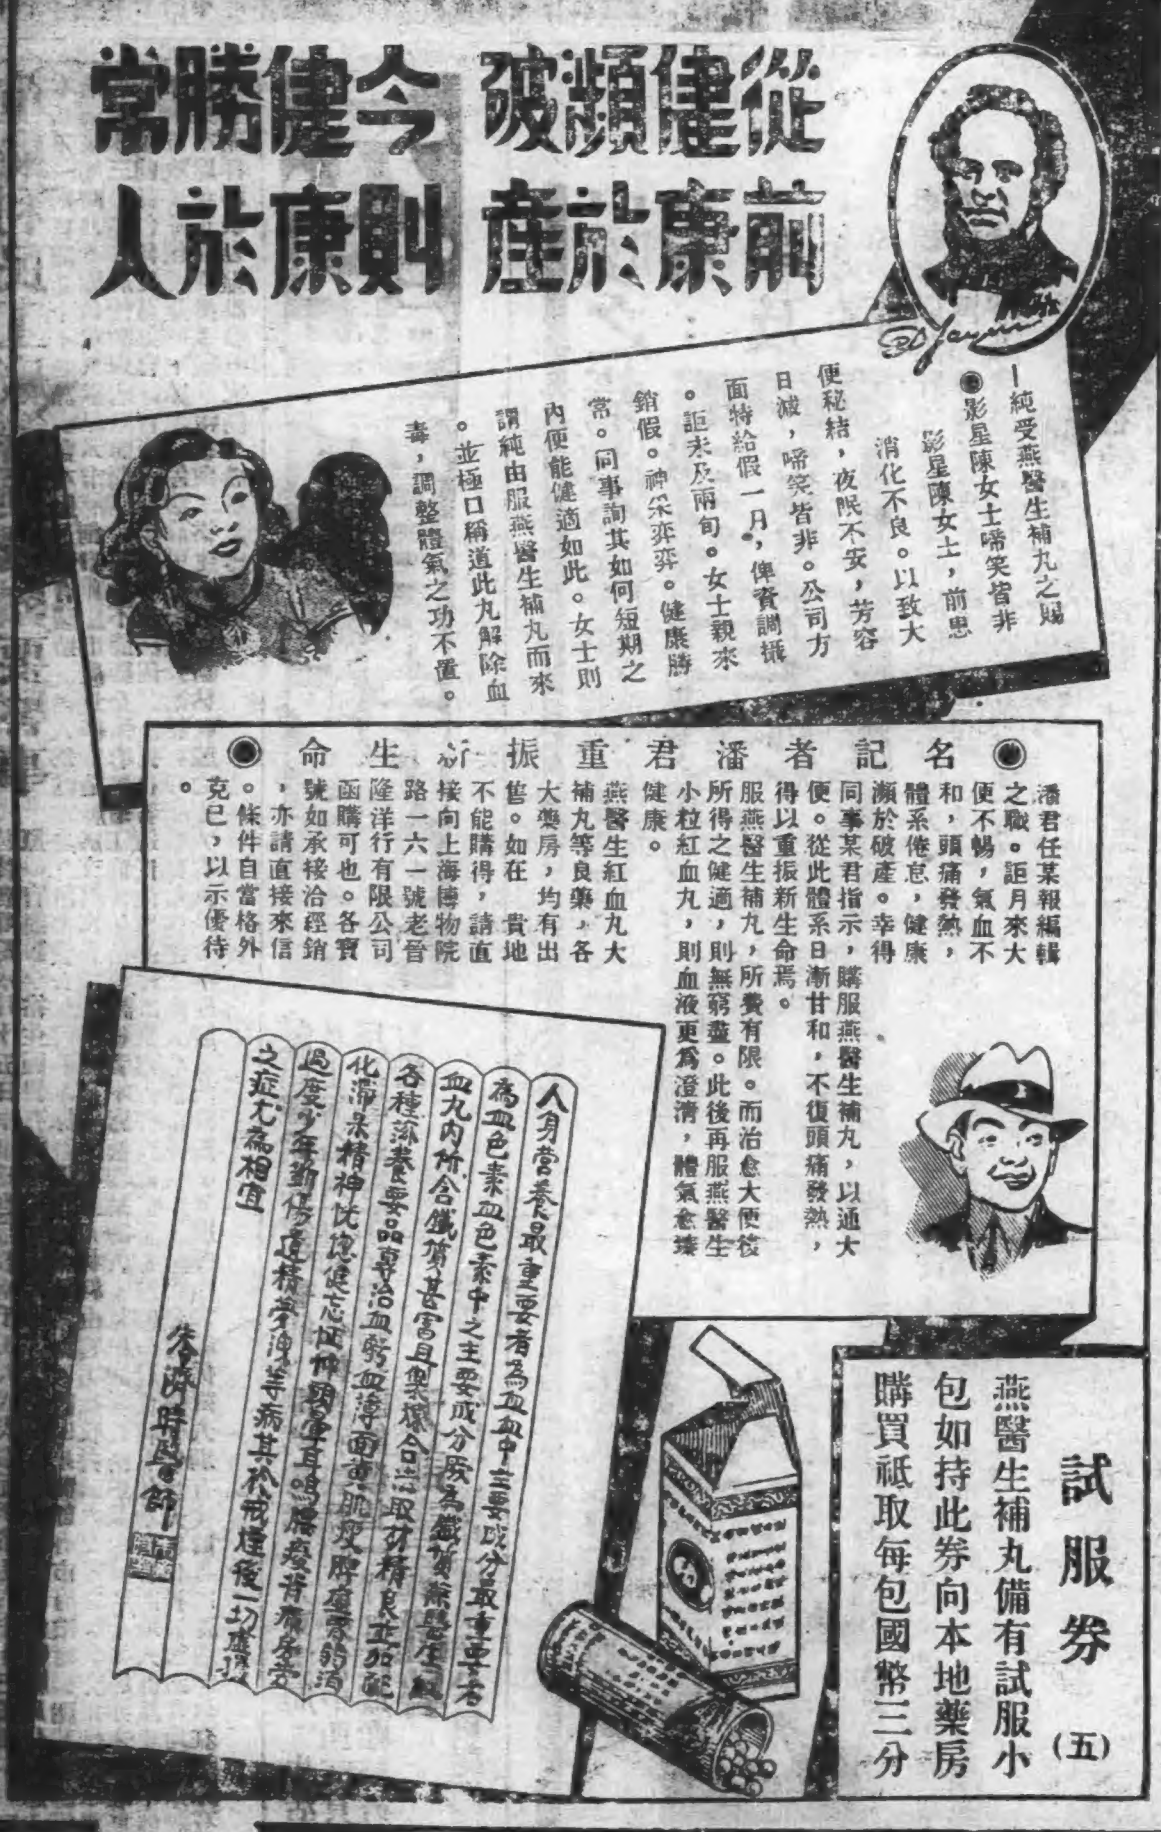 從前健康瀕於破產
今則健康勝於常人
—純受燕醫生補丸之賜
◉影星陳女士啼笑皆非
影星陳女士，前患
消化不良。以致大
便秘結，夜眠不安，芳容
日減，啼笑皆非。公司方
面特給假一月，俾資調攝
。詎未及兩旬。女士親來
銷假。神采弈弈。健康勝
常。同事詢其如何短期之
內便能健適如此。女士則
謂純由服燕醫生補丸而來
。並極口稱道此丸解除血
毒，調整體氣之功不置。
◉名記者潘君重振新生命◉
潘君任某報編輯
之職。詎月來大
便不暢，氣血不
和，頭痛發熱，
體系倦怠，健康
瀕於破產。幸得
同事某君指示，購服燕醫生補丸，以通大
便。從此體系日漸甘和，不復頭痛發熱，
得以重振新生命焉。
服燕醫生補丸，所費有限。而治愈大便後
所得之健適，則無窮盡。此後再服燕醫生
小粒紅血丸，則血液更為澄清，體氣愈臻
健康。
燕醫生紅血丸大
補丸等良藥，各
大藥房，均有出
售。如在 貴地
不能購得，請直
接向上海博物院
路一六一號老晉
隆洋行有限公司
函購可也。各寶
號如承接洽經銷
，亦請直接來信
。條件自當格外
克已，以示優待
。
人身營養最重要者為血血中主要成分最重要者
為血色素血色素中之主要成分厥為鐵質燕醫生紅
血丸內所含鐵質甚富且製煉合法取材精良並加配
各種滋養要品專治血虧血薄面黃肌瘦脾虛胃弱消
化滯呆精神恍惚健忘怔忡頭暈耳鳴腰痠背痛房勞
過度少年斲傷遺精夢洩等病其於戒煙後一切虛損
之症尤為相宜
朱濟時醫師
試服券
(五)
燕醫生補丸備有試服小
包如持此券向本地藥房
購買祇取每包國幣三分